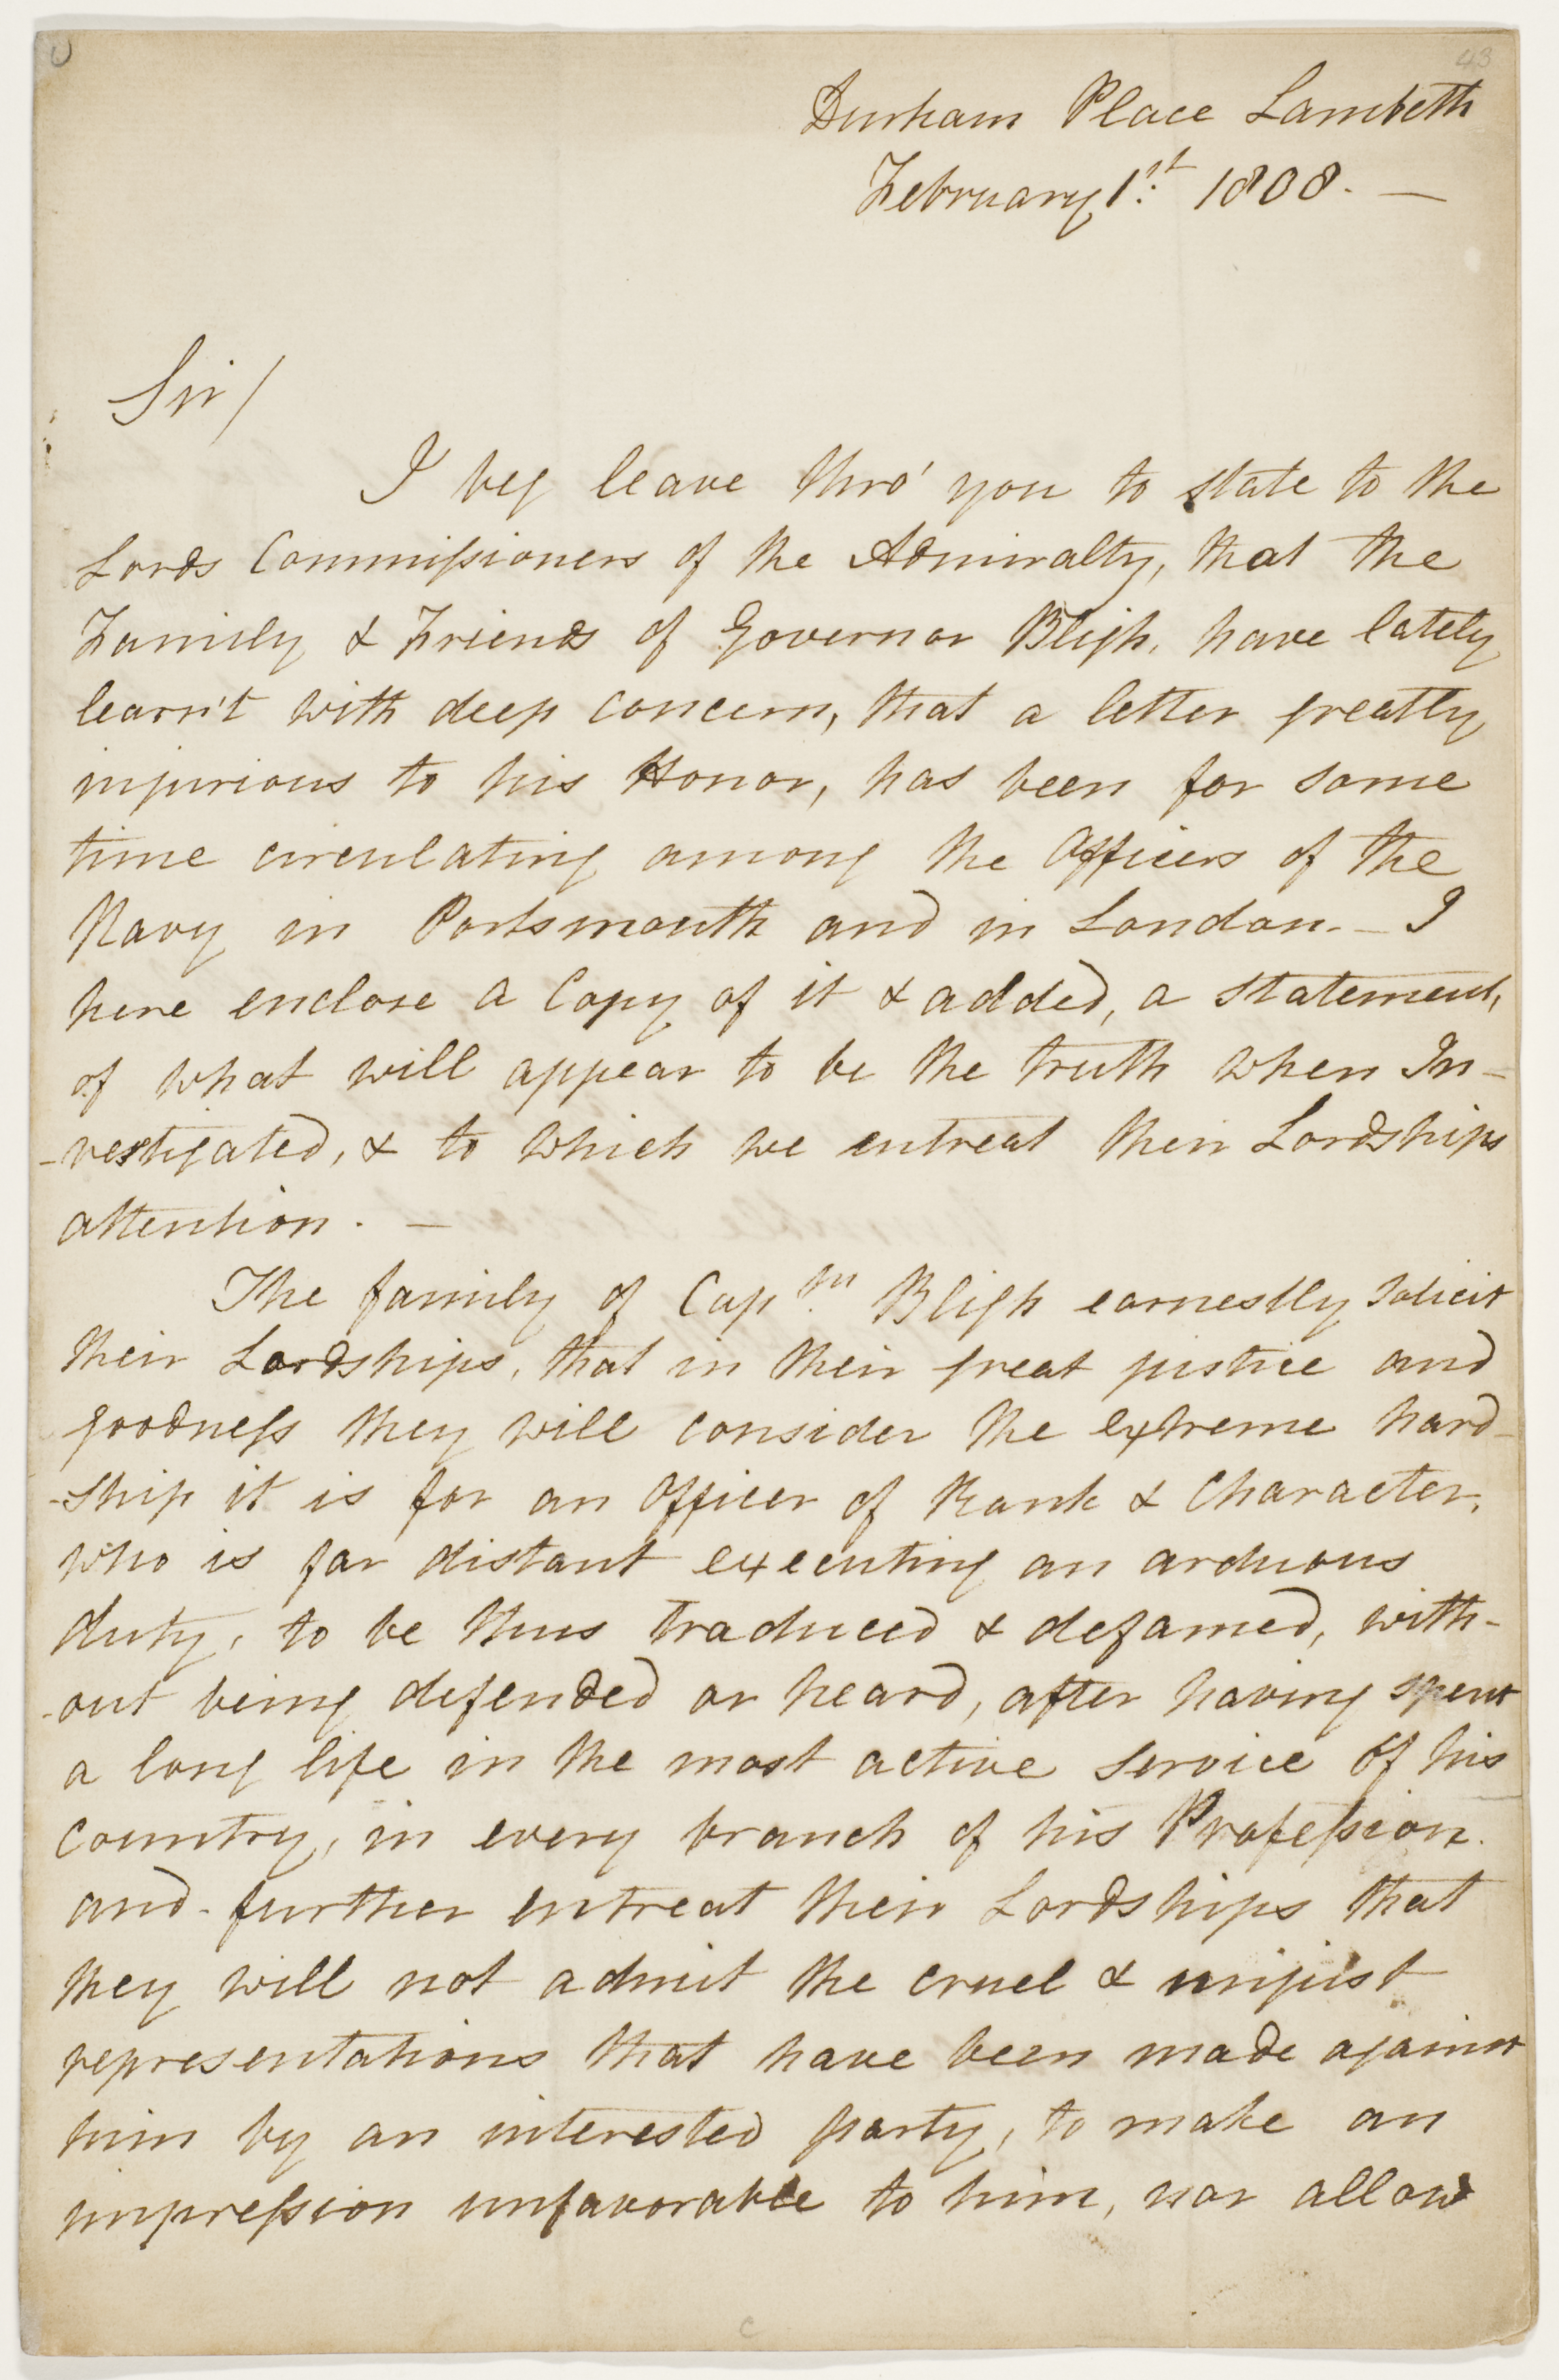 43
Durham Place Lambeth
February 1st. 1808. —
Sir/
I beg leave thro' you to state to the
Lords Commissioners of the Admiralty, that the
Family & Friends of Governor Bligh, have lately
learn't with deep concern, that a letter greatly
injurious to his Honor, has been for some
time circulating among the Officers of the
Navy in Portsmouth and in London. – I
here enclose a Copy of it & added, a statement,
of what will appear to be the truth when In-
-vestigated, & to which we entreat their Lordships
attention. —
The family of Captn. Bligh earnestly solicit
their Lordships, that in their great justice and
goodness they will consider the extreme hard-
-ship it is for an Officer of Rank & Character,
who is far distant executing an arduous
duty, to be thus traduced & defamed, with-
-out being defended or heard, after having spent
a long life in the most active service of his
Country, in every branch of his Profession.
and - further entreat their Lordships that
they will not admit the cruel & unjust
representations that have been made against
him by an interested party, to make an
impression unfavorable to him, nor allow
c